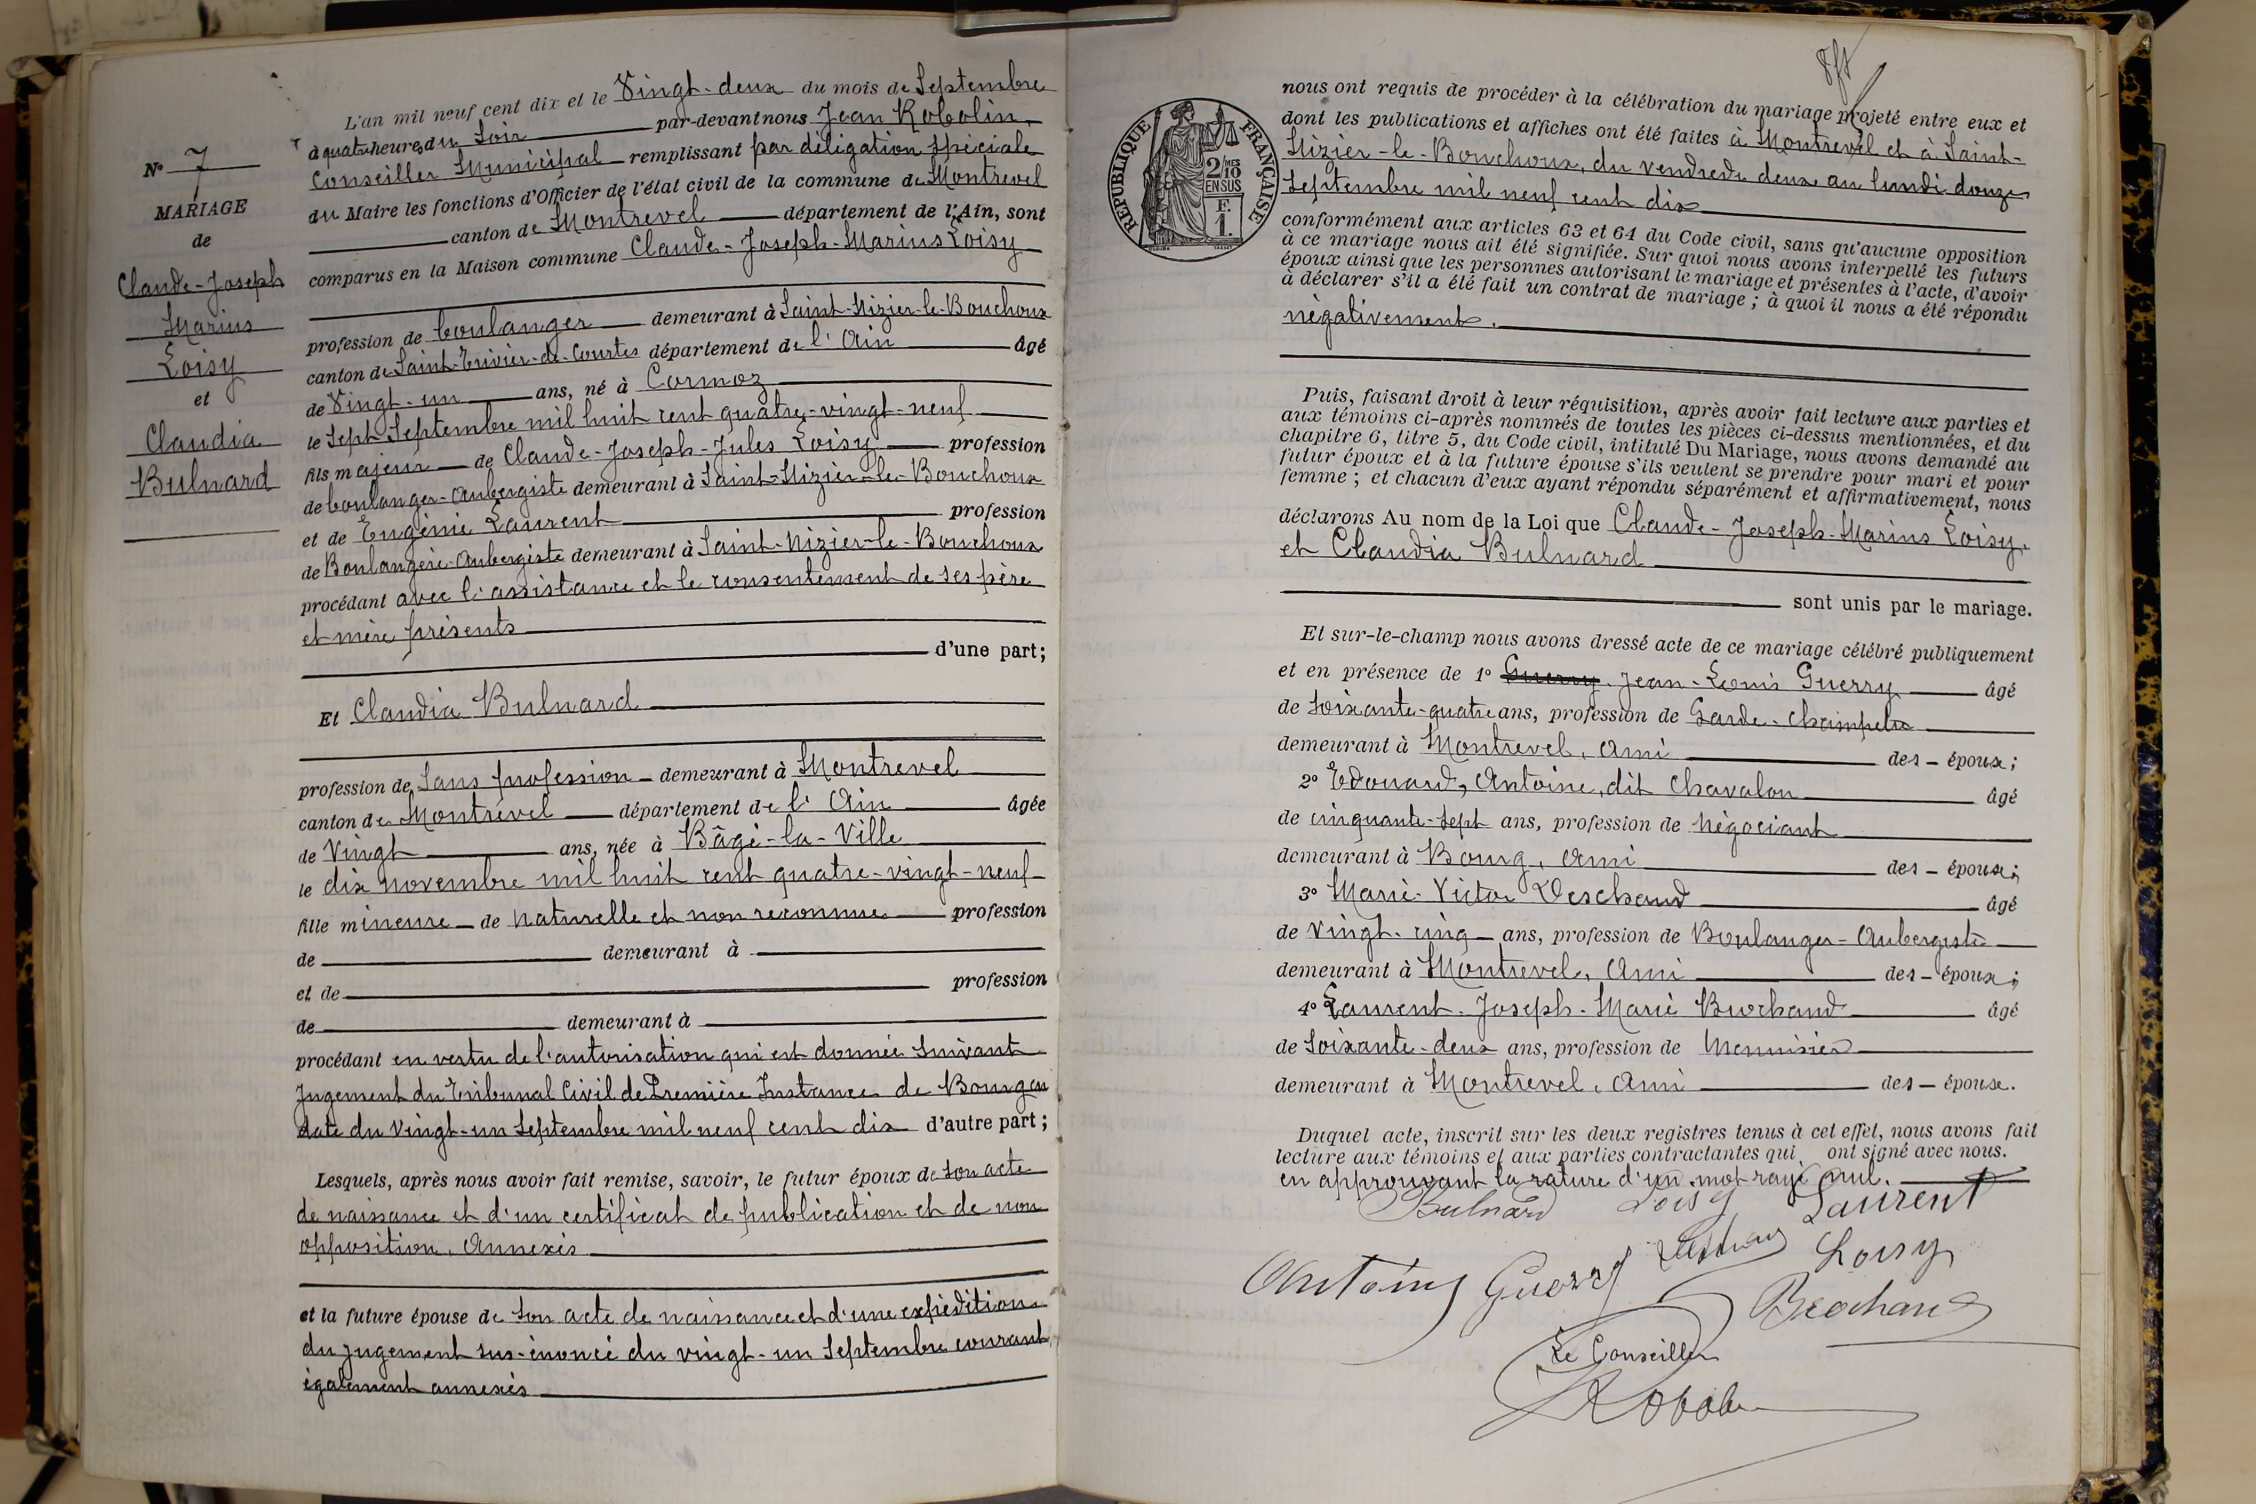 L'an mil neuf cent dix et le Vingt-deux du mois de Septembre
à quatre heures du Soir par-devant nous Jean Robolin,
Conseiller Municipal remplissant par déligation spéciale
du Maire les fonctions d'Officier de l'état civil de la commune de Montrevel
canton de Montrevel département de l'Ain, sont
comparus en la Maison commune Claude-Joseph-Marius Loisy
profession de boulanger demeurant à Saint-Nizier-le-Bouchoux
canton de Saint-Trivier-de-Courtes département de l'Ain âgé
de Vingt-un ans, né à Cormoz
le Sept Septembre mil huit cent quatre-vingt-neuf
fils majeur de Claude-Joseph-Jules Loisy profession
de boulanger-Aubergiste demeurant à Saint-Nizier-le-Bouchoux
et de Eugénie Laurent profession
de Boulangère-Aubergiste demeurant à Saint-Nizier-le-Bouchoux
procédant avec l'assistance et le consentement de ses père
et mère présents
d'une part;
Et Claudia Bulnard
profession de Sans profession demeurant à Montrevel
canton de Montrevel département de l'Ain âgée
de Vingt ans, née à Bâgé-la-Ville
le dix novembre mil huit cent quatre-vingt-neuf
fille mineure de naturelle et non reconnue profession
de demeurant à
et de profession
de demeurant à
procédant en vertu de l'autorisation qui est donnée suivant
Jugement du Tribunal Civil de Première Instance de Bourg en
date du Vingt-un Septembre mil neuf cent dix d'autre part;
Lesquels, après nous avoir fait remise, savoir, le futur époux de son acte
de naissance et d'un certificat de publication et de non
opposition, Annexés
et la future épouse de son acte de naissance et d'une expédition
du jugement sus-énoncé du vingt-un Septembre courant,
également annexés
N° 7
MARIAGE
de
Claude-Joseph
Marius
Loisy
et
Claudia
Bulnard
nous ont requis de procéder à la célébration du mariage projeté entre eux et
dont les publications et affiches ont été faites à Montrevel et à Saint-
Nizier-le-Bouchoux, du vendredi deux au lundi douze
Septembre mil neuf cent dix
conformément aux articles 63 et 64 du Code civil, sans qu'aucune opposition
à ce mariage nous ait été signifiée. Sur quoi nous avons interpellé les futurs
époux ainsi que les personnes autorisant le mariage et présentes à l'acte, d'avoir
à déclarer s'il a été fait un contrat de mariage; à quoi il nous a été répondu
négativement.
RÉPUBLIQUE FRANÇAISE
2/10 MES
EN SUS
F.
1.
Puis, faisant droit à leur réquisition, après avoir fait lecture aux parties et
aux témoins ci-après nommés de toutes les pièces ci-dessus mentionnées, et du
chapitre 6, titre 5, du Code civil, intitulé Du Mariage, nous avons demandé au
futur époux et à la future épouse s'ils veulent se prendre pour mari et pour
femme; et chacun d'eux ayant répondu séparément et affirmativement, nous
déclarons Au nom de la Loi que Claude-Joseph-Marius Loisy
et Claudia Bulnard
sont unis par le mariage.
Et sur-le-champ nous avons dressé acte de ce mariage célébré publiquement
et en présence de 1° Guerry Jean-Louis Guerry âgé
de Soixante-quatre ans, profession de Garde-Champêtre
demeurant à Montrevel, Ami des époux;
2° Edouard, Antoine, dit Chavalon âgé
de cinquante-sept ans, profession de Négociant
demeurant à Bourg, Ami des époux;
3° Marie-Victor Deschaud âgé
de Vingt-cinq ans, profession de Boulanger-Aubergiste
demeurant à Montrevel, Ami des époux;
4° Laurent-Joseph-Marie Brochand âgé
de Soixante-deux ans, profession de Menuisier
demeurant à Montrevel, Ami des époux.
Duquel acte, inscrit sur les deux registres tenus à cet effet, nous avons fait
lecture aux témoins et aux parties contractantes qui ont signé avec nous.
en approuvant la rature d'un mot rayé nul.
Bulnard Loisy Laurent
Antoine Guerry Loisy
Brochand
Le Conseiller
Robolin